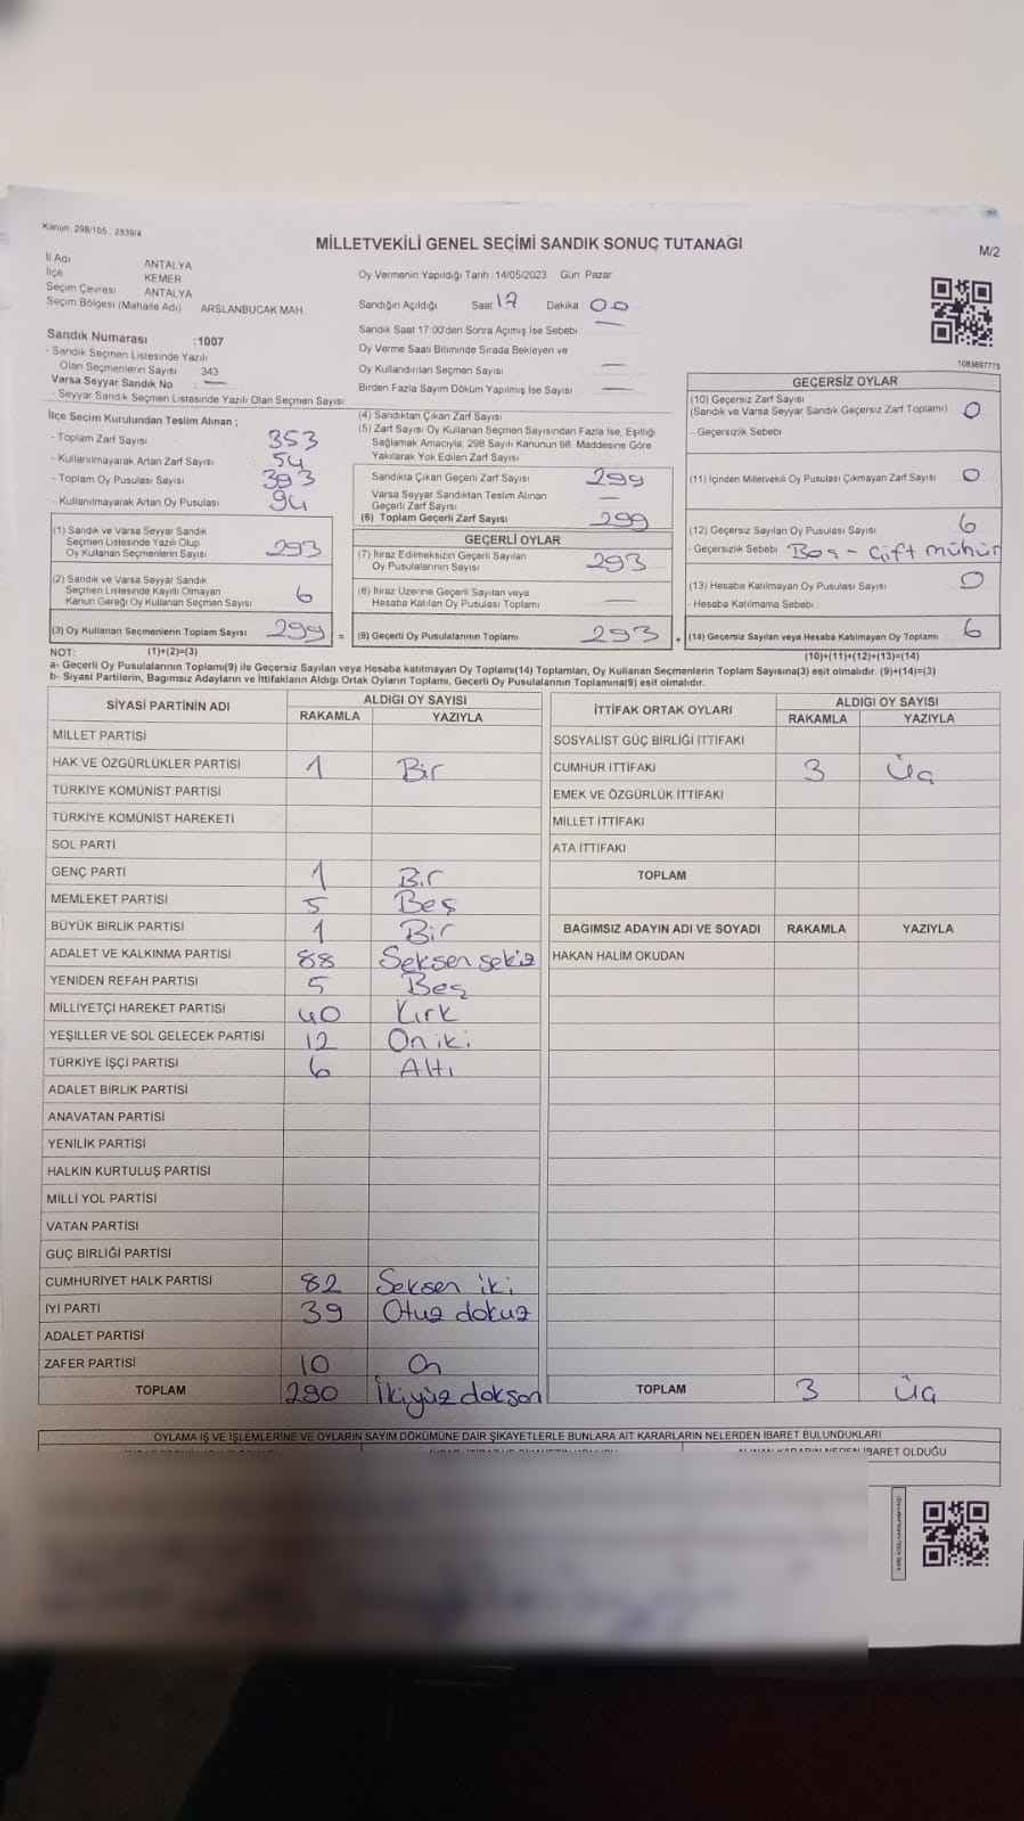 Kanun: 298/105, 2839/4
MİLLETVEKİLİ GENEL SEÇİMİ SANDIK SONUÇ TUTANAĞI
M/2
İl Adı ANTALYA
İlçe KEMER
Seçim Çevresi ANTALYA
Seçim Bölgesi (Mahalle Adı) ARSLANBUCAK MAH.
Oy Vermenin Yapıldığı Tarih :14/05/2023 Gün Pazar
Sandığın Açıldığı Saat 17 Dakika 00
Sandık Saat 17:00'den Sonra Açılmış İse Sebebi —
Oy Verme Saati Bitiminde Sırada Bekleyen ve
Oy Kullandırılan Seçmen Sayısı —
Birden Fazla Sayım Döküm Yapılmış İse Sayısı —
Sandık Numarası :1007
- Sandık Seçmen Listesinde Yazılı
Olan Seçmenlerin Sayısı 343
Varsa Seyyar Sandık No : —
- Seyyar Sandık Seçmen Listesinde Yazılı Olan Seçmen Sayısı:
İlçe Seçim Kurulundan Teslim Alınan ;
- Toplam Zarf Sayısı 353
- Kullanılmayarak Artan Zarf Sayısı 54
- Toplam Oy Pusulası Sayısı 393
- Kullanılmayarak Artan Oy Pusulası 94
(1) Sandık ve Varsa Seyyar Sandık
Seçmen Listesinde Yazılı Olup
Oy Kullanan Seçmenlerin Sayısı 293
(2) Sandık ve Varsa Seyyar Sandık
Seçmen Listesinde Kayıtlı Olmayan
Kanun Gereği Oy Kullanan Seçmen Sayısı 6
(3) Oy Kullanan Seçmenlerin Toplam Sayısı 299 =
(4) Sandıktan Çıkan Zarf Sayısı
(5) Zarf Sayısı Oy Kullanan Seçmen Sayısından Fazla İse, Eşitliği
Sağlamak Amacıyla; 298 Sayılı Kanunun 98. Maddesine Göre
Yakılarak Yok Edilen Zarf Sayısı
Sandıkta Çıkan Geçerli Zarf Sayısı 299
Varsa Seyyar Sandıktan Teslim Alınan
Geçerli Zarf Sayısı —
(6) Toplam Geçerli Zarf Sayısı 299
GEÇERLİ OYLAR
(7) İtiraz Edilmeksizin Geçerli Sayılan
Oy Pusulalarının Sayısı 293
(8) İtiraz Üzerine Geçerli Sayılan veya
Hesaba Katılan Oy Pusulası Toplamı —
(9) Geçerli Oy Pusulalarının Toplamı 293 +
1085897775
GEÇERSİZ OYLAR
(10) Geçersiz Zarf Sayısı
(Sandık ve Varsa Seyyar Sandık Geçersiz Zarf Toplamı) 0
- Geçersizlik Sebebi
(11) İçinden Milletvekili Oy Pusulası Çıkmayan Zarf Sayısı 0
(12) Geçersiz Sayılan Oy Pusulası Sayısı 6
- Geçersizlik Sebebi Boş - Çift mühür
(13) Hesaba Katılmayan Oy Pusulası Sayısı 0
- Hesaba Katılmama Sebebi :
(14) Geçersiz Sayılan veya Hesaba Katılmayan Oy Toplamı 6
NOT: (1)+(2)=(3) (10)+(11)+(12)+(13)=(14)
a- Geçerli Oy Pusulalarının Toplamı(9) ile Geçersiz Sayılan veya Hesaba katılmayan Oy Toplamı(14) Toplamları, Oy Kullanan Seçmenlerin Toplam Sayısına(3) eşit olmalıdır. (9)+(14)=(3)
b- Siyasi Partilerin, Bağımsız Adayların ve İttifakların Aldığı Ortak Oyların Toplamı, Geçerli Oy Pusulalarının Toplamına(9) eşit olmalıdır.
SİYASİ PARTİNİN ADI ALDIĞI OY SAYISI
RAKAMLA YAZIYLA
MİLLET PARTİSİ
HAK VE ÖZGÜRLÜKLER PARTİSİ 1 Bir
TÜRKİYE KOMÜNİST PARTİSİ
TÜRKİYE KOMÜNİST HAREKETİ
SOL PARTİ
GENÇ PARTİ 1 Bir
MEMLEKET PARTİSİ 5 Beş
BÜYÜK BİRLİK PARTİSİ 1 Bir
ADALET VE KALKINMA PARTİSİ 88 Seksen sekiz
YENİDEN REFAH PARTİSİ 5 Beş
MİLLİYETÇİ HAREKET PARTİSİ 40 Kırk
YEŞİLLER VE SOL GELECEK PARTİSİ 12 On iki
TÜRKİYE İŞÇİ PARTİSİ 6 Altı
ADALET BİRLİK PARTİSİ
ANAVATAN PARTİSİ
YENİLİK PARTİSİ
HALKIN KURTULUŞ PARTİSİ
MİLLİ YOL PARTİSİ
VATAN PARTİSİ
GÜÇ BİRLİĞİ PARTİSİ
CUMHURİYET HALK PARTİSİ 82 Seksen iki
İYİ PARTİ 39 Otuz dokuz
ADALET PARTİSİ
ZAFER PARTİSİ 10 On
TOPLAM 290 İkiyüz doksan
İTTİFAK ORTAK OYLARI ALDIĞI OY SAYISI
RAKAMLA YAZIYLA
SOSYALİST GÜÇ BİRLİĞİ İTTİFAKI
CUMHUR İTTİFAKI 3 Üç
EMEK VE ÖZGÜRLÜK İTTİFAKI
MİLLET İTTİFAKI
ATA İTTİFAKI
TOPLAM
BAĞIMSIZ ADAYIN ADI VE SOYADI RAKAMLA YAZIYLA
HAKAN HALİM OKUDAN
TOPLAM 3 Üç
OYLAMA İŞ VE İŞLEMLERİNE VE OYLARIN SAYIM DÖKÜMÜNE DAİR ŞİKAYETLERLE BUNLARA AİT KARARLARIN NELERDEN İBARET BULUNDUKLARI
ALINAN KARARIN NEDEN İBARET OLDUĞU